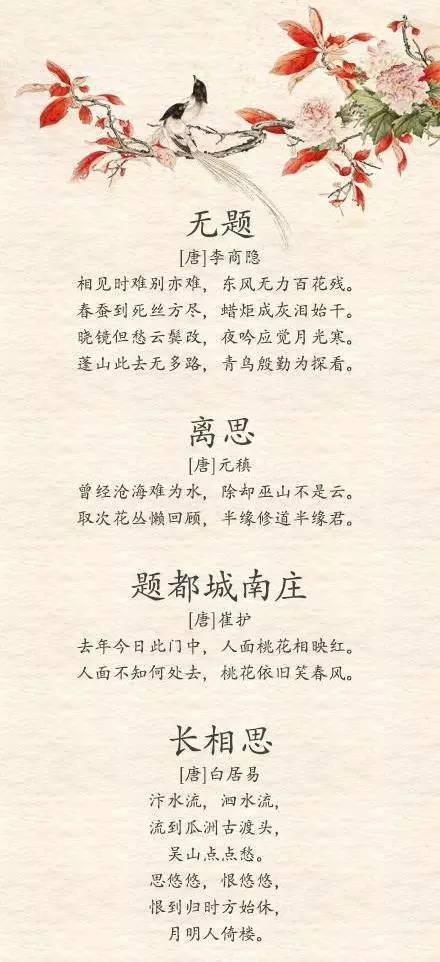 无题
[唐]李商隐
相见时难别亦难，东风无力百花残。
春蚕到死丝方尽，蜡炬成灰泪始干。
晓镜但愁云鬓改，夜吟应觉月光寒。
蓬山此去无多路，青鸟殷勤为探看。
离思
[唐]元稹
曾经沧海难为水，除却巫山不是云。
取次花丛懒回顾，半缘修道半缘君。
题都城南庄
[唐]崔护
去年今日此门中，人面桃花相映红。
人面不知何处去，桃花依旧笑春风。
长相思
[唐]白居易
汴水流，泗水流，
流到瓜洲古渡头，
吴山点点愁。
思悠悠，恨悠悠，
恨到归时方始休，
月明人倚楼。